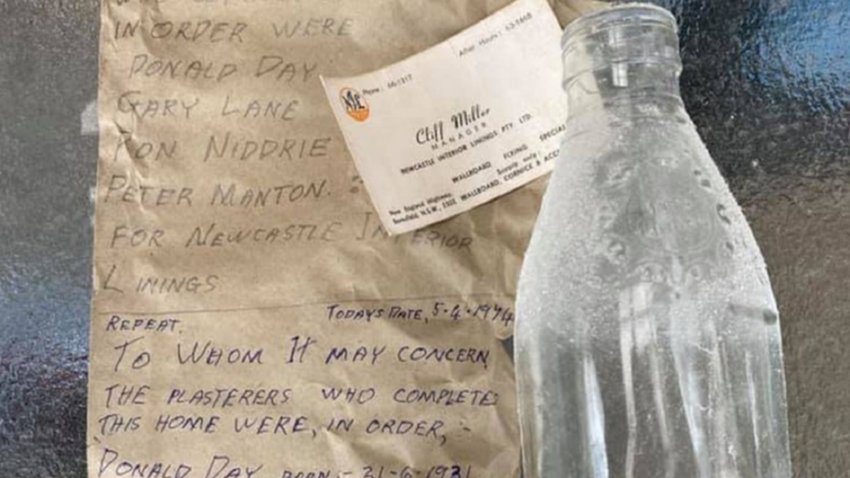 IN ORDER WERE
DONALD DAY
GARY LANE
RON NIDDRIE
PETER MANTON.
FOR NEWCASTLE INTERIOR
LININGS
REPEAT. TODAYS DATE, 5.4.1974
TO WHOM IT MAY CONCERN
THE PLASTERERS WHO COMPLETED
THIS HOME WERE, IN ORDER,
DONALD DAY BORN - 21-6-1931
Phone: 66-1317 After Hours: 63-1668
Cliff Miller
MANAGER
NEWCASTLE INTERIOR LININGS PTY. LTD.
WALLBOARD FIXING SPECIAL
Supply only:
New England Highway, WALLBOARD, CORNICE & ACCE
Beresfield N.S.W. 2322